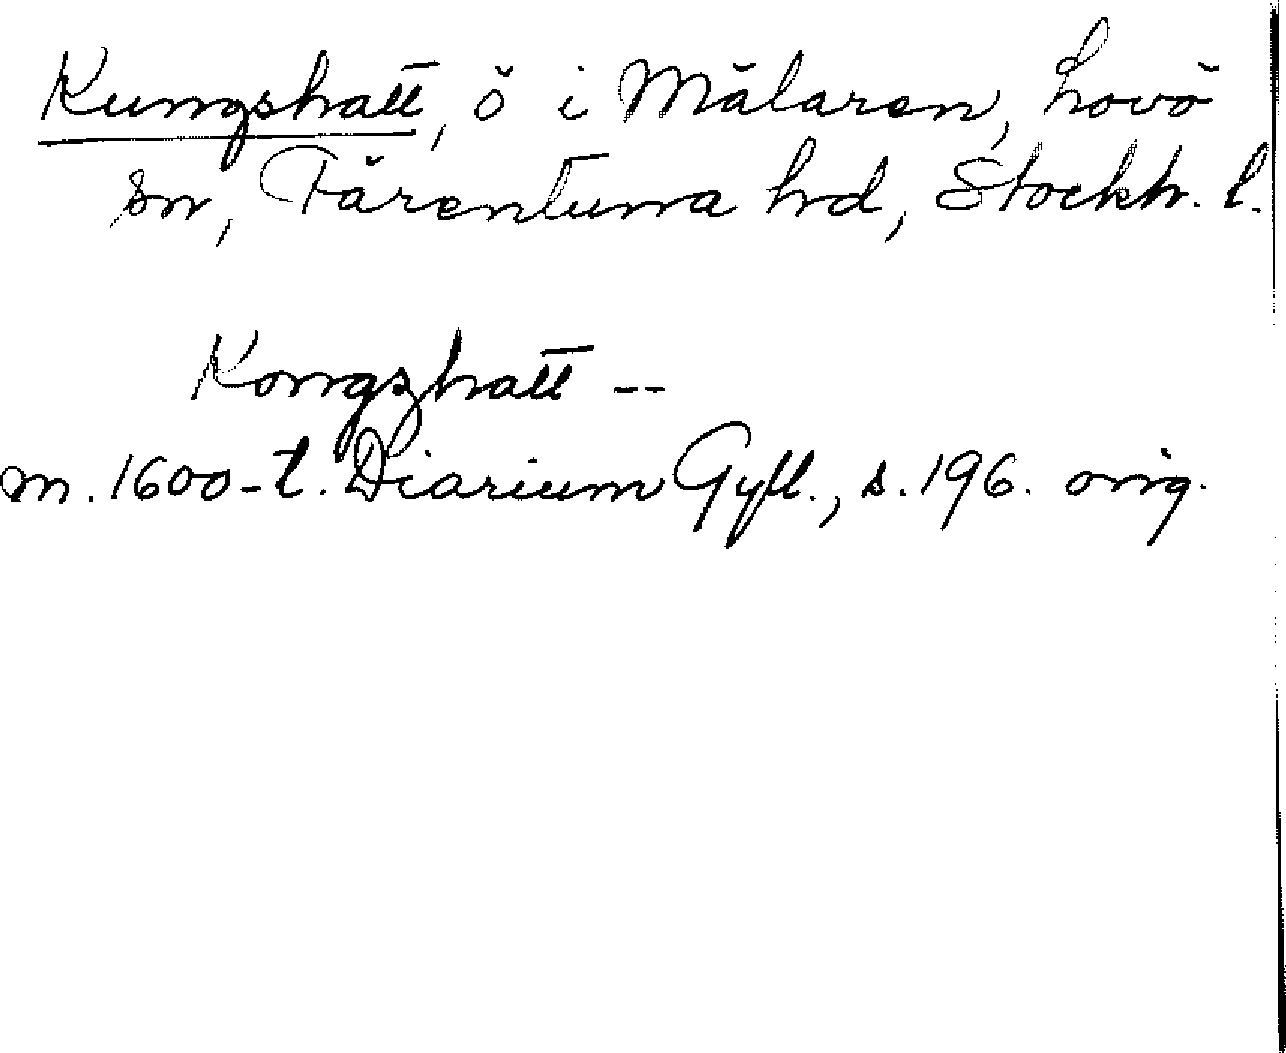 Kungshatt, ö i Mälaren, Lovö
sn, Färentuna hd, Stockh. l.
Kongzhatt --
m. 1600-t. Diarium Gyll., s. 196. orig.